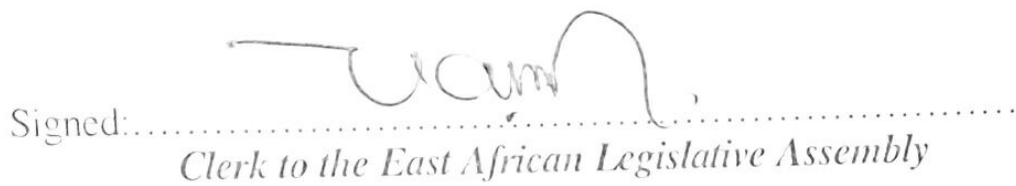 Signed:..........................................................................
Clerk to the East African Legislative Assembly